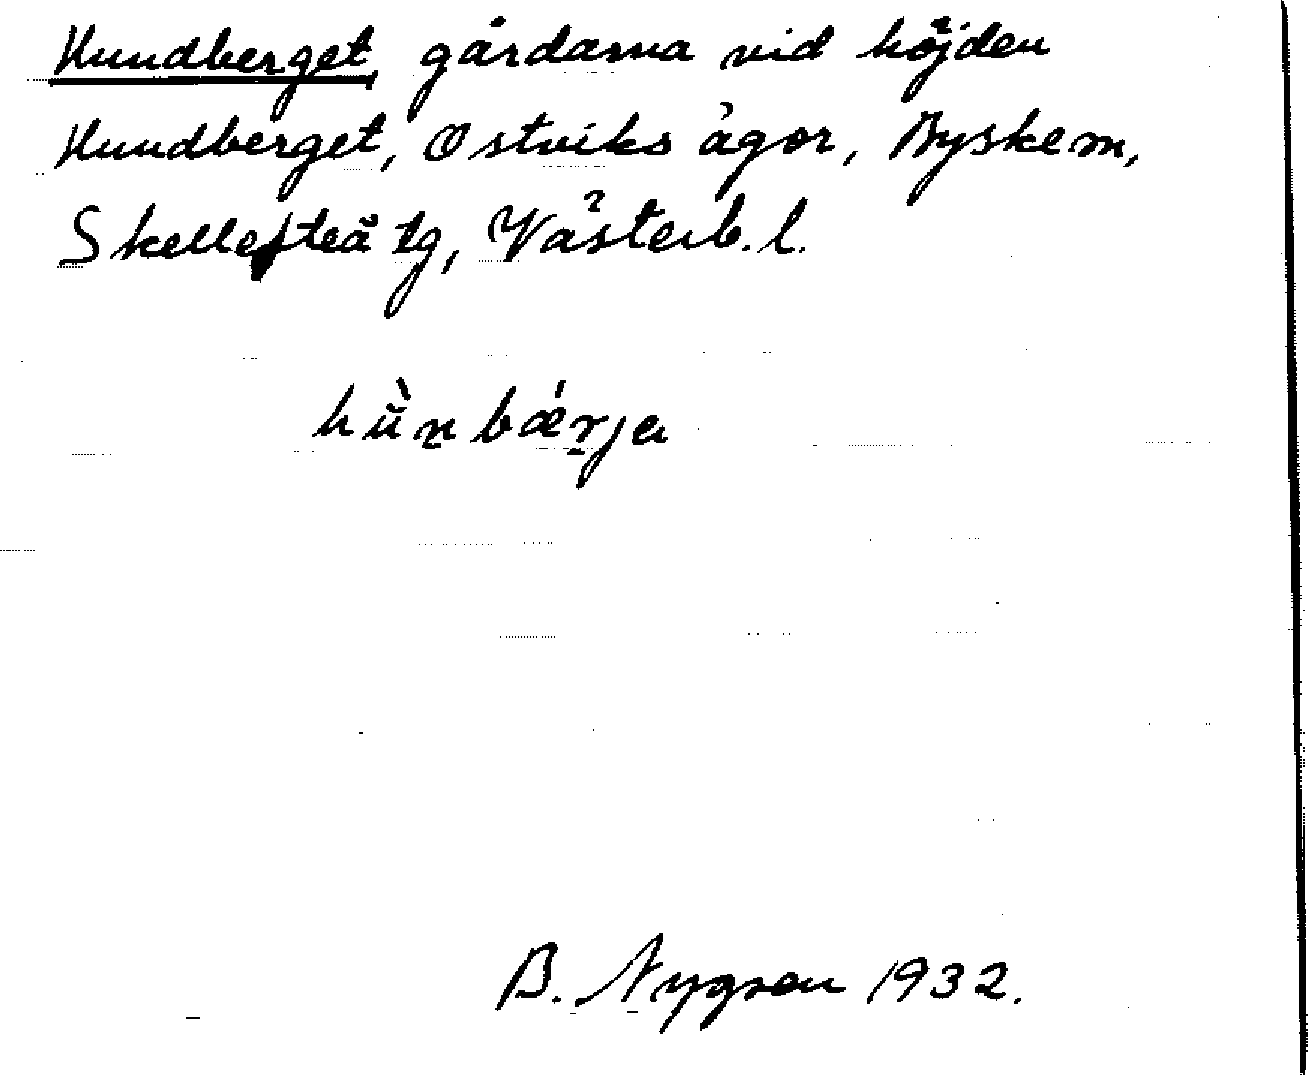 Hundberget, gårdarna vid höjden
Hundberget, Ostviks ägor, Byske m,
Skellefteå tg, Västerb. l.
hùn bǽrja
B. Nygren 1932.